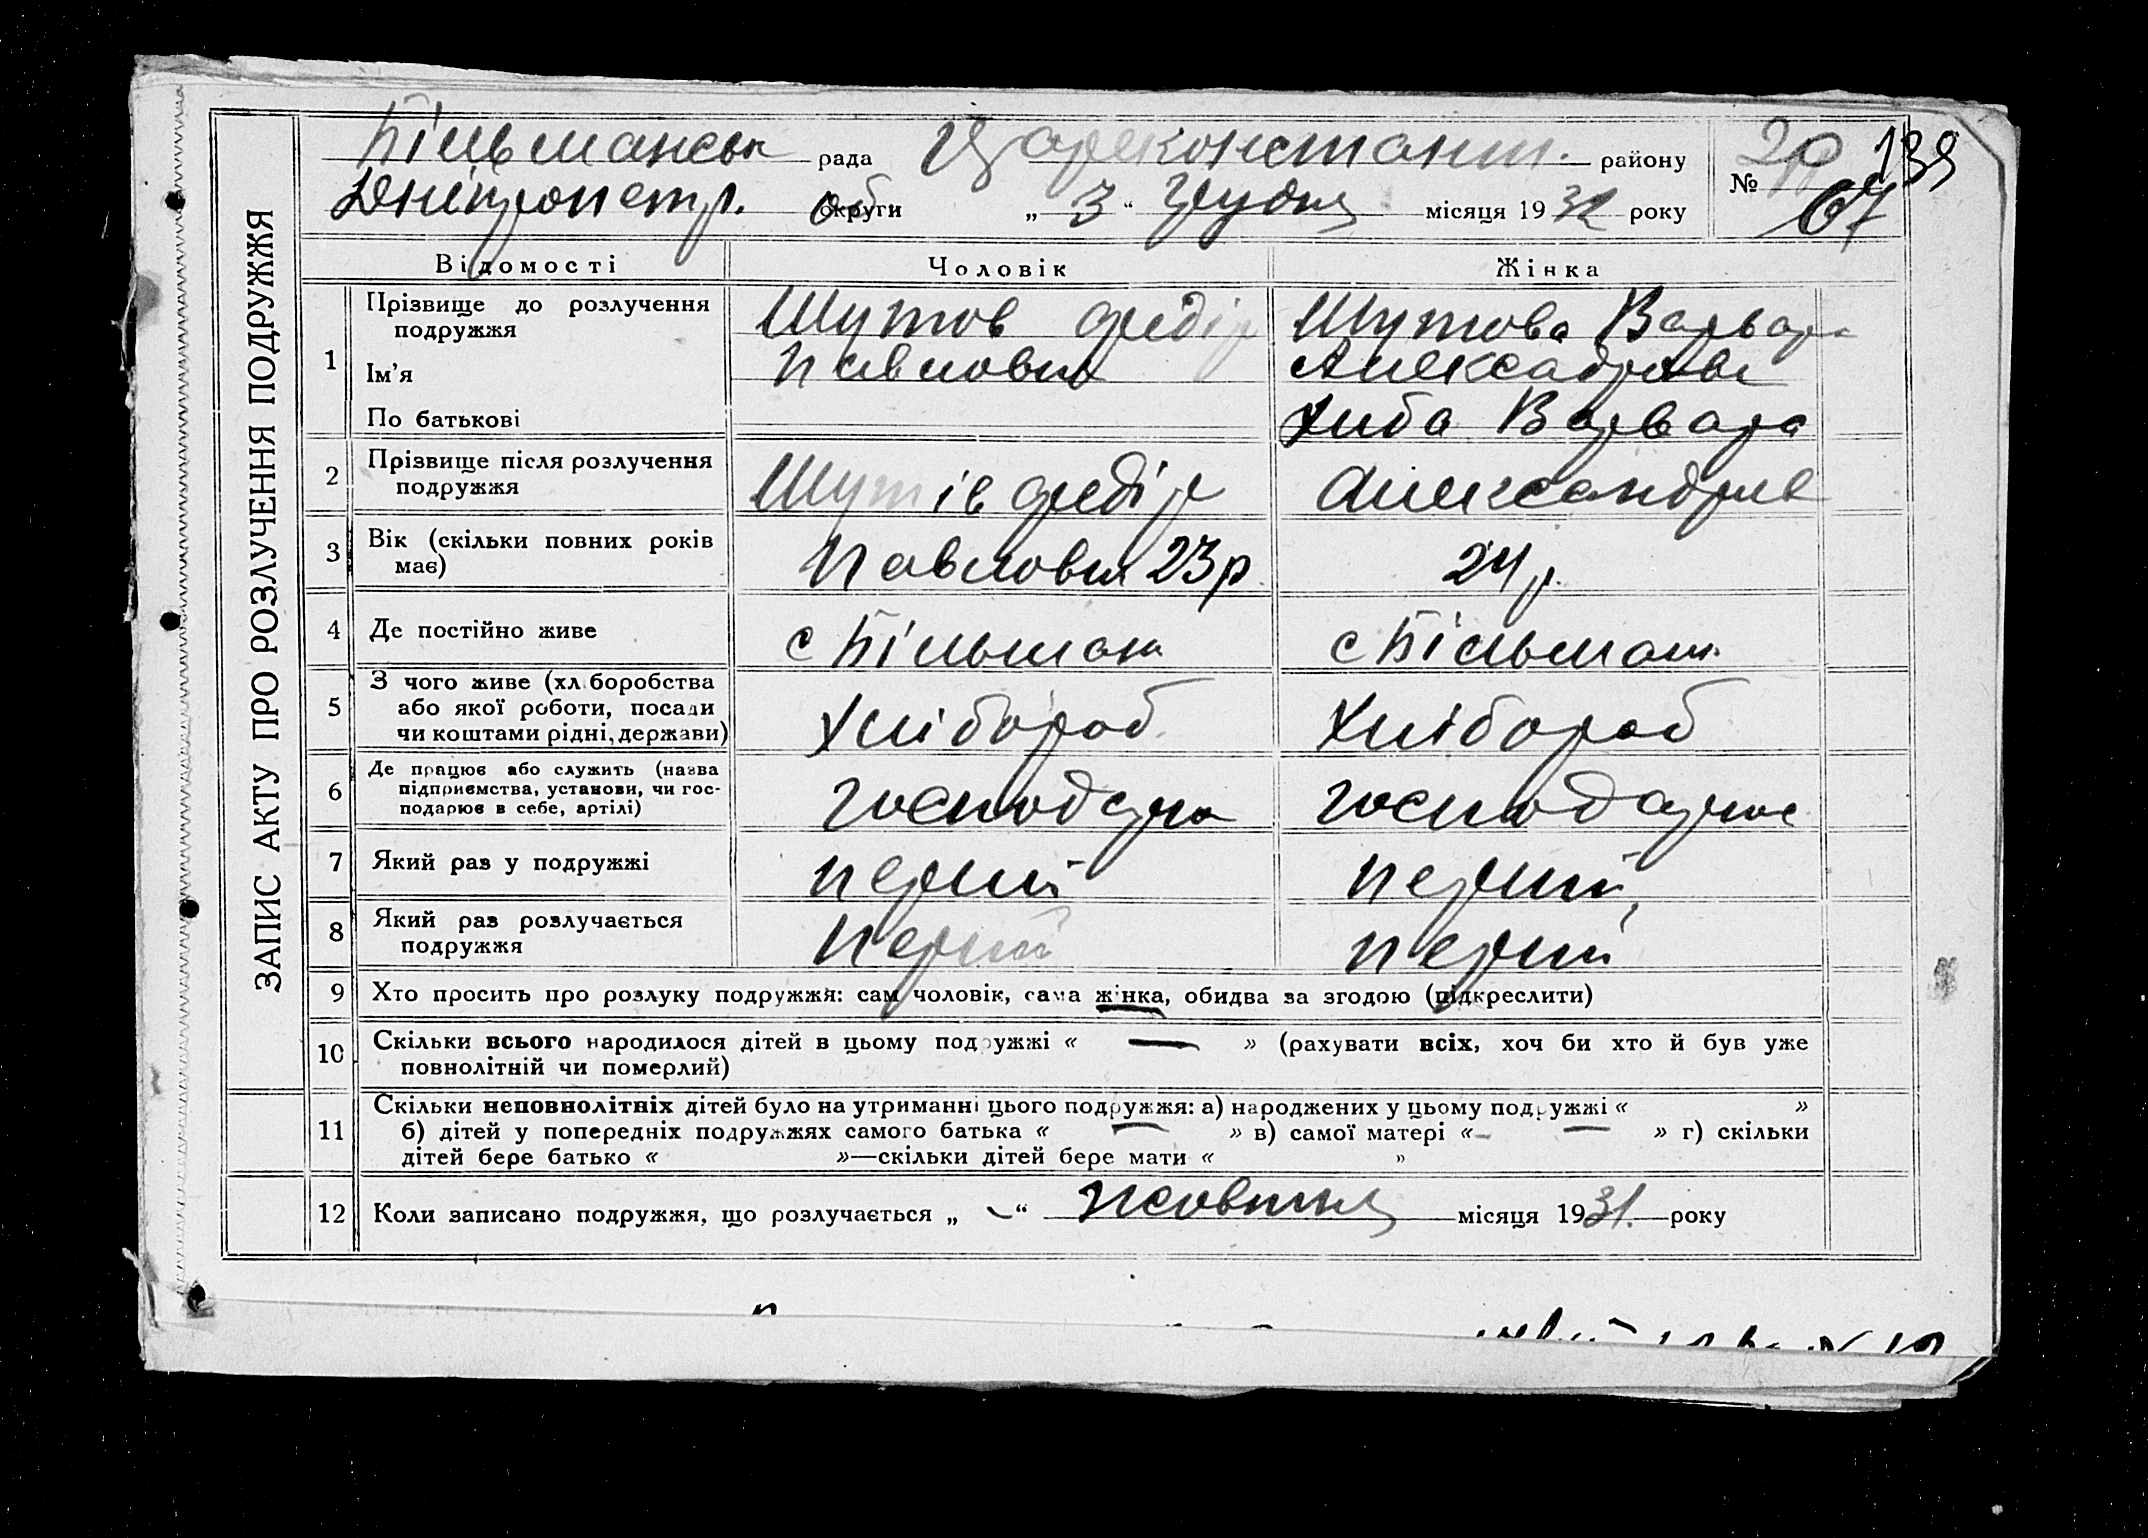 ЗАПИС АКТУ ПРО РОЗЛУЧЕННЯ ПОДРУЖЖЯ
Більманськ рада Цареконстант. району
Дніпропетр. округи об „ 3 “ Грудня місяця 19 32 року
№ 20 139
67
Відомості Чоловік Жінка
1 Прізвище до розлучення подружжя
Ім’я
По батькові
Шутов Федір
Павлович
Шутова Варвара
Хиба Варвара
2 Прізвище після розлучення
подружжя
Шутів Федір
3 Вік (скільки повних років
має)
Павлович 23 р.
24 р.
4 Де постійно живе с Більман с Більман.
5 З чого живе (хліборобства
або якої роботи, посади
чи коштами рідні, держави)
Хлібороб Хлібороб
6 Де працює або служить (назва
підприємства, установи, чи гос-
подарює в себе, артілі)
7 Який раз у подружжі перший перший
8 Який раз розлучається
подружжя
перший перший
9 Хто просить про розлуку подружжя: сам чоловік, сама жінка, обидва за згодою (підкреслити)
10 Скільки всього народилося дітей в цьому подружжі « — » (рахувати всіх, хоч би хто й був уже
повнолітній чи померлий)
11 Скільки неповнолітніх дітей було на утриманні цього подружжя: а) народжених у цьому подружжі « »
б) дітей у попередніх подружжях самого батька « — » в) самої матері « — » г) скільки
дітей бере батько « »—скільки дітей бере мати « »
12 Коли записано подружжя, що розлучається „ — “ Жовтня місяця 19 31. року